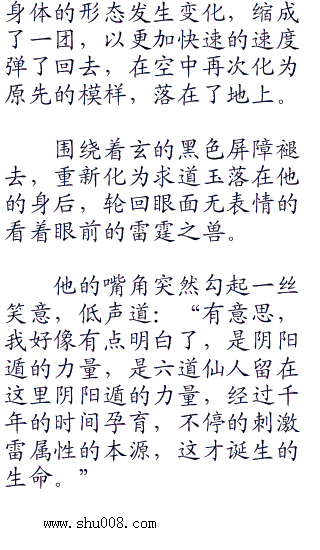 身体的形态发生变化，缩成
了一团，以更加快速的速度
弹了回去，在空中再次化为
原先的模样，落在了地上。
围绕着玄的黑色屏障褪
去，重新化为求道玉落在他
的身后，轮回眼面无表情的
看着眼前的雷霆之兽。
他的嘴角突然勾起一丝
笑意，低声道：“有意思，
我好像有点明白了，是阴阳
遁的力量，是六道仙人留在
这里阴阳遁的力量，经过千
年的时间孕育，不停的刺激
雷属性的本源，这才诞生的
生命。”
www.shu008.com